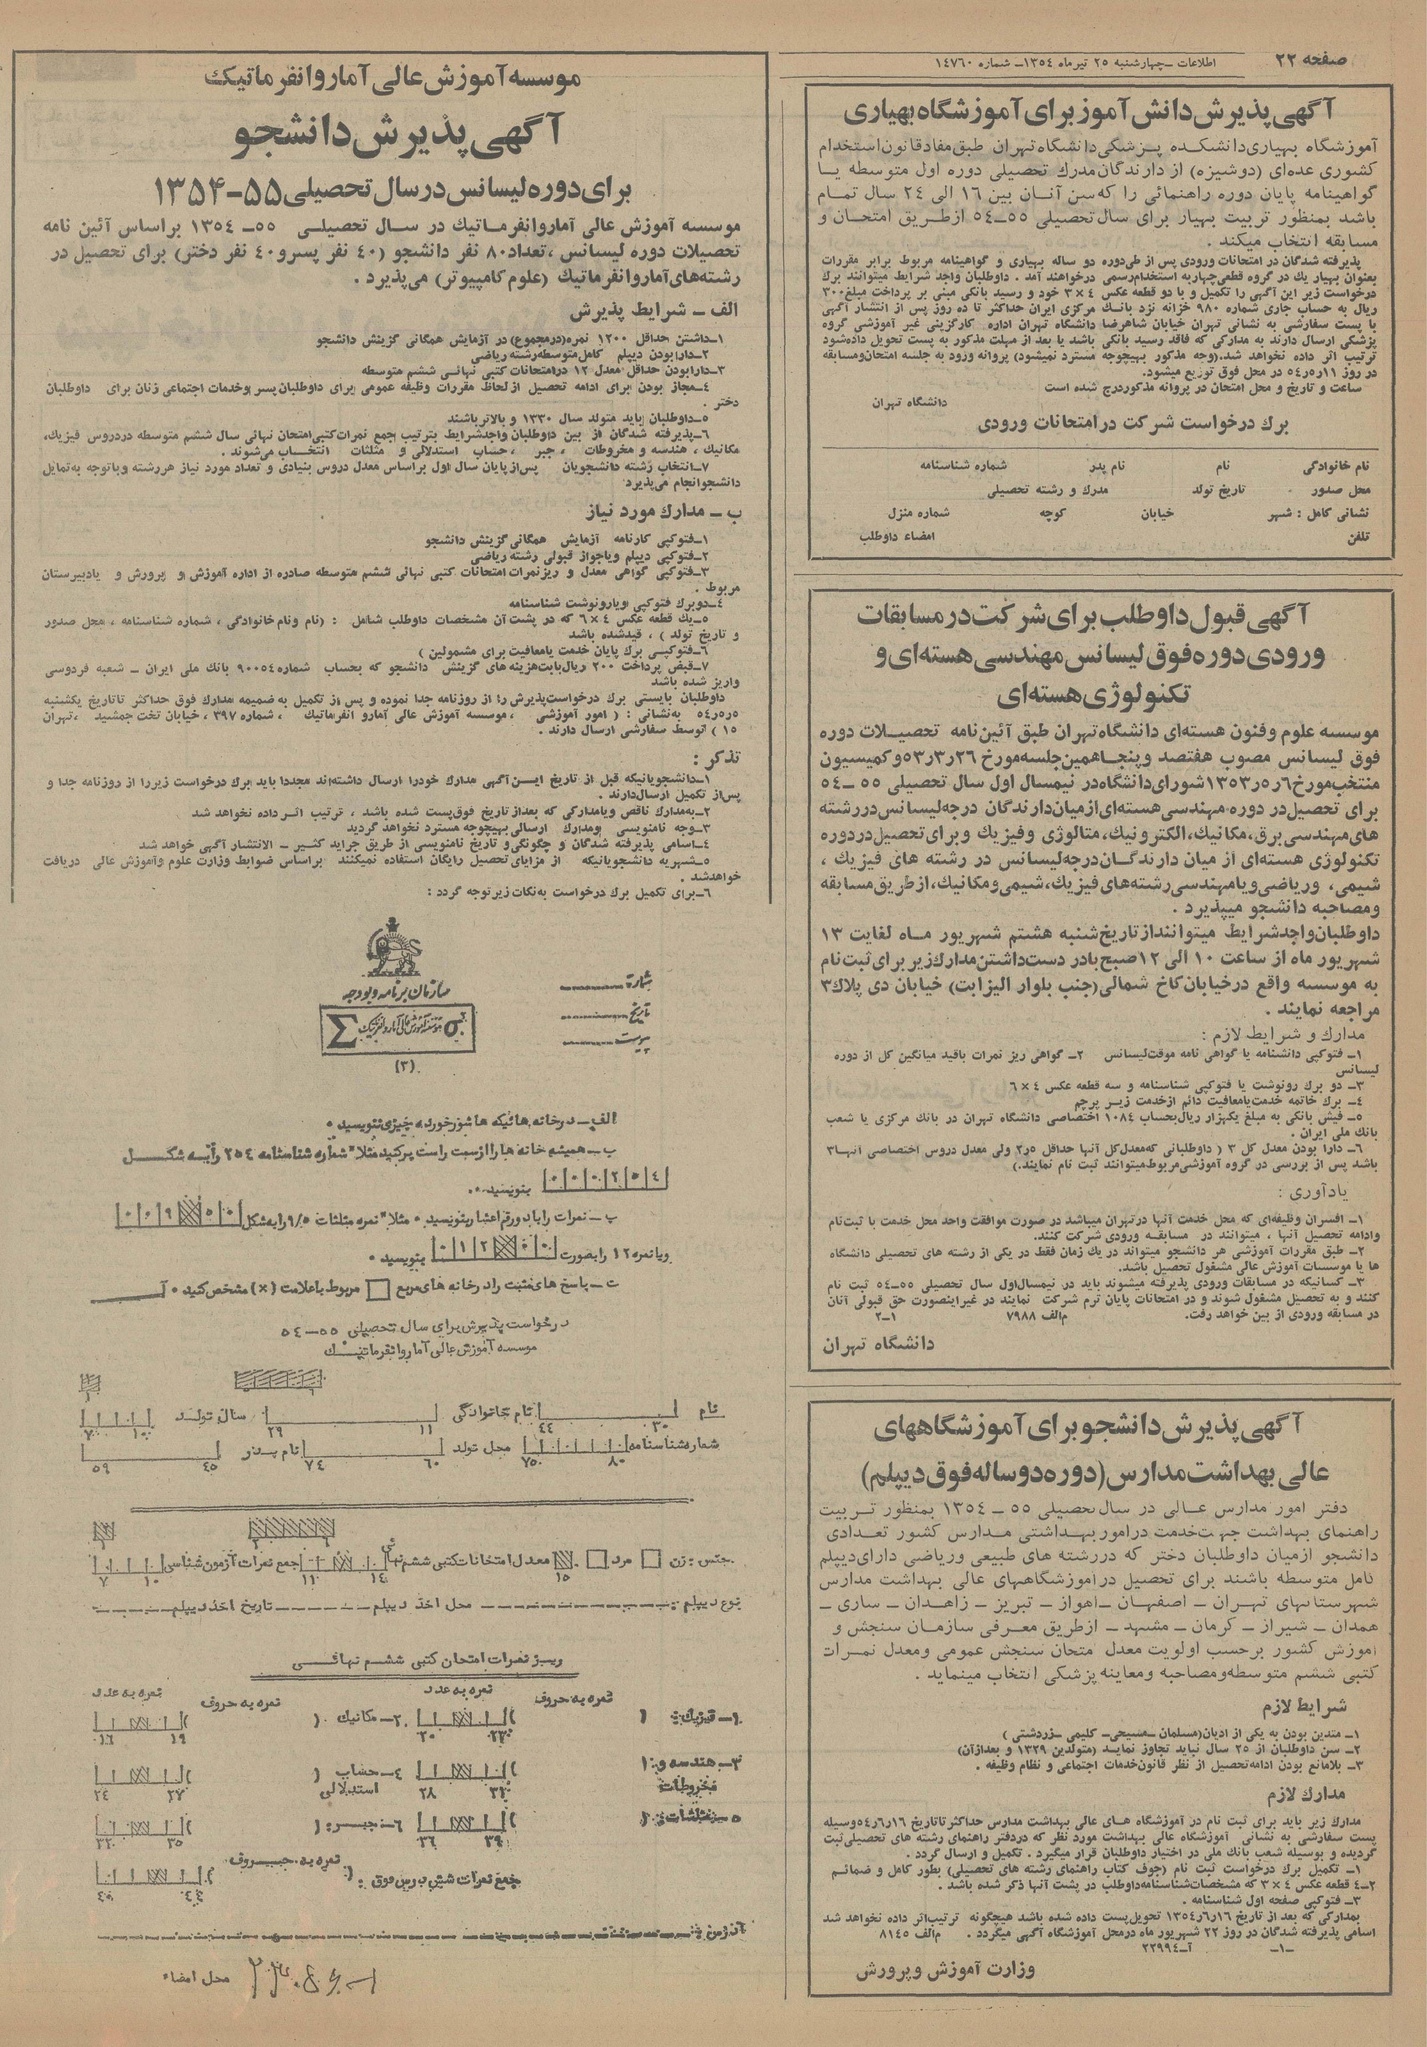 صفحه ۲۲
اطلاعات ـ چهارشنبه ۲۵ تیرماه ۱۳۵۴ـ شماره ۱۴۷۶۰
آگهی پذیرش دانش آموز برای آموزشگاه بهیاری
آموزشگاه بهیاری دانشکده پزشکی دانشگاه تهران طبق مفاد قانون استخدام
کشوری عده‌ای (دوشیزه) از دارندگان مدرک تحصیلی دوره اول متوسطه یا
گواهینامه پایان دوره راهنمائی را که سن آنان بین ۱۶ الی ۲۴ سال تمام
باشد بمنظور تربیت بهیار برای سال تحصیلی ۵۵ـ۵۴ از طریق امتحان و
مسابقه انتخاب میکند .
پذیرفته شدگان در امتحانات ورودی پس از طی دوره دو ساله بهیاری و گواهینامه مربوط برابر مقررات
بعنوان بهیار یک در گروه قطعی چهار به استخدام رسمی درخواهند آمد . داوطلبان واجد شرایط میتوانند برک
درخواست زیر این آگهی را تکمیل و با دو قطعه عکس ۴×۳ خود و رسید بانکی مبنی بر پرداخت مبلغ ۳۰۰
ریال به حساب جاری شماره ۹۸۰ خزانه نزد بانک مرکزی ایران حداکثر تا ده روز پس از انتشار آگهی
با پست سفارشی به نشانی تهران خیابان شاهرضا دانشگاه تهران اداره کارگزینی غیر آموزشی گروه
پزشکی ارسال دارند به مدارکی که فاقد رسید بانکی باشد یا بعد از مهلت مذکور به پست تحویل داده شود
ترتیب اثر داده نخواهد شد.(وجه مذکور بهیچوجه مسترد نمیشود) پروانه ورود به جلسه امتحان و مسابقه
در روز ۵۴ر۵ر۱۱ در محل فوق توزیع میشود.
ساعت و تاریخ و محل امتحان در پروانه مذکور درج شده است
دانشگاه تهران
برک درخواست شرکت در امتحانات ورودی
نام خانوادگی نام نام پدر شماره شناسنامه
محل صدور تاریخ تولد مدرک و رشته تحصیلی
نشانی کامل : شهر خیابان کوچه شماره منزل
تلفن امضاء داوطلب
آگهی قبول داوطلب برای شرکت در مسابقات
ورودی دوره فوق لیسانس مهندسی هسته‌ای و
تکنولوژی هسته‌ای
موسسه علوم و فنون هسته‌ای دانشگاه تهران طبق آئین نامه تحصیلات دوره
فوق لیسانس مصوب هفتصد و پنجاهمین جلسه مورخ ۵۳ر۳ر۲۶ و کمیسیون
منتخب مورخ ۱۳۵۳ر۵ر۶ شورای دانشگاه در نیمسال اول سال تحصیلی ۵۵ ـ۵۴
برای تحصیل در دوره مهندسی هسته‌ای از میان دارندگان درجه لیسانس در رشته
های مهندسی برق، مکانیک، الکترونیک، متالوژی و فیزیک و برای تحصیل در دوره
تکنولوژی هسته‌ای از میان دارندگان درجه لیسانس در رشته های فیزیک ،
شیمی، و ریاضی و یا مهندسی رشته‌های فیزیک، شیمی و مکانیک، از طریق مسابقه
و مصاحبه دانشجو میپذیرد .
داوطلبان واجد شرایط میتوانند از تاریخ شنبه هشتم شهریور ماه لغایت ۱۳
شهریور ماه از ساعت ۱۰ الی ۱۲ صبح با در دست داشتن مدارک زیر برای ثبت نام
به موسسه واقع در خیابان کاخ شمالی (جنب بلوار الیزابت) خیابان دی پلاک ۳
مراجعه نمایند .
مدارک و شرایط لازم :
۱ـ فتوکپی دانشنامه یا گواهی نامه موقت لیسانس ۲ـ گواهی ریز نمرات باقید میانگین کل از دوره
لیسانس
۳ـ دو برک رونوشت یا فتوکپی شناسنامه و سه قطعه عکس ۴×۶
۴ـ برک خاتمه خدمت یا معافیت دائم از خدمت زیر پرچم
۵ـ فیش بانکی به مبلغ یکهزار ریال بحساب ۱۰۸۴ اختصاصی دانشگاه تهران در بانک مرکزی یا شعب
بانک ملی ایران .
۶ـ دارا بودن معدل کل ۳ ( داوطلبانی که معدل کل آنها حداقل ۵ر۲ ولی معدل دروس اختصاصی آنها ۳
باشد پس از بررسی در گروه آموزشی مربوط میتوانند ثبت نام نمایند.)
یادآوری :
۱ـ افسران وظیفه‌ای که محل خدمت آنها در تهران میباشد در صورت موافقت واحد محل خدمت با ثبت نام
و ادامه تحصیل آنها ، میتوانند در مسابقه ورودی شرکت کنند.
۲ـ طبق مقررات آموزشی هر دانشجو میتواند در یک زمان فقط در یکی از رشته های تحصیلی دانشگاه
ها یا موسسات آموزش عالی مشغول تحصیل باشد.
۳ـ کسانیکه در مسابقات ورودی پذیرفته میشوند باید در نیمسال اول سال تحصیلی ۵۵ـ۵۴ ثبت نام
کنند و به تحصیل مشغول شوند و در امتحانات پایان ترم شرکت نمایند در غیر اینصورت حق قبولی آنان
در مسابقه ورودی از بین خواهد رفت. م‌الف ۷۹۸۸ ۱ـ۲
دانشگاه تهران
آگهی پذیرش دانشجو برای آموزشگاههای
عالی بهداشت مدارس (دوره دوساله فوق دیپلم)
دفتر امور مدارس عالی در سال تحصیلی ۵۵ ـ ۱۳۵۴ بمنظور تربیت
راهنمای بهداشت جهت خدمت در امور بهداشتی مدارس کشور تعدادی
دانشجو از میان داوطلبان دختر که در رشته های طبیعی و ریاضی دارای دیپلم
کامل متوسطه باشند برای تحصیل در آموزشگاههای عالی بهداشت مدارس
شهرستانهای تهران ـ اصفهان ـ اهواز ـ تبریز ـ زاهدان ـ ساری ـ
همدان ـ شیراز ـ کرمان ـ مشهد ـ از طریق معرفی سازمان سنجش و
آموزش کشور برحسب اولویت معدل امتحان سنجش عمومی و معدل نمرات
کتبی ششم متوسطه و مصاحبه و معاینه پزشکی انتخاب مینماید .
شرایط لازم
۱ـ متدین بودن به یکی از ادیان (مسلمان ـ مسیحی ـ کلیمی ـ زردشتی )
۲ـ سن داوطلبان از ۲۵ سال نباید تجاوز نماید (متولدین ۱۳۲۹ و بعد از آن)
۳ـ بلامانع بودن ادامه تحصیل از نظر قانون خدمات اجتماعی و نظام وظیفه .
مدارک لازم
مدارک زیر باید برای ثبت نام در آموزشگاه های عالی بهداشت مدارس حداکثر تا تاریخ ۵۴ر۶ر۱۶ بوسیله
پست سفارشی به نشانی آموزشگاه عالی بهداشت مورد نظر که در دفتر راهنمای رشته های تحصیلی ثبت
گردیده و بوسیله شعب بانک ملی در اختیار داوطلبان قرار میگیرد . تکمیل و ارسال گردد .
۱ـ تکمیل برک درخواست ثبت نام (جوف کتاب راهنمای رشته های تحصیلی) بطور کامل و ضمائم
۲ـ۴ قطعه عکس ۴×۳ که مشخصات شناسنامه داوطلب در پشت آنها ذکر شده باشد .
۳ـ فتوکپی صفحه اول شناسنامه .
بمدارکی که بعد از تاریخ ۱۳۵۴ر۶ر۱۶ تحویل پست داده شده باشد هیچگونه ترتیب اثر داده نخواهد شد
اسامی پذیرفته شدگان در روز ۲۲ شهریور ماه در محل آموزشگاه آگهی میگردد . م‌الف ۸۱۴۵
ـ۱ـ آـ۲۲۹۹۴
وزارت آموزش و پرورش
موسسه آموزش عالی آمار و انفرماتیک
آگهی پذیرش دانشجو
برای دوره لیسانس در سال تحصیلی ۵۵ـ۱۳۵۴
موسسه آموزش عالی آمار و انفرماتیک در سال تحصیلی ۵۵ـ ۱۳۵۴ براساس آئین نامه
تحصیلات دوره لیسانس ، تعداد ۸۰ نفر دانشجو (۴۰ نفر پسر و ۴۰ نفر دختر) برای تحصیل در
رشته‌های آمار و انفرماتیک (علوم کامپیوتر) می‌پذیرد .
الف ـ شرایط پذیرش
۱ـ داشتن حداقل ۱۲۰۰ نمره (در مجموع) در آزمایش همگانی گزینش دانشجو
۲ـ دارا بودن دیپلم کامل متوسطه رشته ریاضی
۳ـ دارا بودن حداقل معدل ۱۲ در امتحانات کتبی نهائی ششم متوسطه
۴ـ مجاز بودن برای ادامه تحصیل از لحاظ مقررات وظیفه عمومی برای داوطلبان پسر و خدمات اجتماعی زنان برای داوطلبان
دختر .
۵ـ داوطلبان باید متولد سال ۱۳۳۰ و بالاتر باشند
۶ـ پذیرفته شدگان از بین داوطلبان واجد شرایط بترتیب جمع نمرات کتبی امتحان نهائی سال ششم متوسطه در دروس فیزیک،
مکانیک ، هندسه و مخروطات ، جبر ، حساب استدلالی و مثلثات انتخاب می‌شوند .
۷ـ انتخاب رشته دانشجویان پس از پایان سال اول براساس معدل دروس بنیادی و تعداد مورد نیاز هر رشته و با توجه به تمایل
دانشجو انجام می‌پذیرد
ب ـ مدارک مورد نیاز
۱ـ فتوکپی کارنامه آزمایش همگانی گزینش دانشجو
۲ـ فتوکپی دیپلم و یا جواز قبولی رشته ریاضی
۳ـ فتوکپی گواهی معدل و ریز نمرات امتحانات کتبی نهائی ششم متوسطه صادره از اداره آموزش و پرورش و یا دبیرستان
مربوط .
۴ـ دو برک فتوکپی و یا رونوشت شناسنامه
۵ـ یک قطعه عکس ۴×۶ که در پشت آن مشخصات داوطلب شامل : (نام و نام خانوادگی ، شماره شناسنامه ، محل صدور
و تاریخ تولد ) ، قید شده باشد
۶ـ فتوکپی برک پایان خدمت یا معافیت برای مشمولین )
۷ـ قبض پرداخت ۲۰۰ ریال بابت هزینه های گزینش دانشجو که بحساب شماره ۹۰۰۵۴ بانک ملی ایران ـ شعبه فردوسی
واریز شده باشد
داوطلبان بایستی برک درخواست پذیرش را از روزنامه جدا نموده و پس از تکمیل به ضمیمه مدارک فوق حداکثر تا تاریخ یکشنبه
۵۴ر۵ر۵ به نشانی : ( امور آموزشی ، موسسه آموزش عالی آمار و انفرماتیک ، شماره ۳۹۷ ، خیابان تخت جمشید ، تهران
۱۵ ) توسط سفارشی ارسال دارند .
تذکر :
۱ـ دانشجویانیکه قبل از تاریخ این آگهی مدارک خود را ارسال داشته‌اند مجددا باید برک درخواست زیر را از روزنامه جدا و
پس از تکمیل ارسال دارند .
۲ـ به مدارک ناقص و یا مدارکی که بعد از تاریخ فوق پست شده باشد ، ترتیب اثر داده نخواهد شد
۳ـ وجه نامنویسی و مدارک ارسالی بهیچوجه مسترد نخواهد گردید
۴ـ اسامی پذیرفته شدگان و چگونگی و تاریخ نامنویسی از طریق جراید کثیر ـ الانتشار آگهی خواهد شد
۵ـ شهریه دانشجویانیکه از مزایای تحصیل رایگان استفاده نمیکنند براساس ضوابط وزارت علوم و آموزش عالی دریافت
خواهد شد .
۶ـ برای تکمیل برک درخواست به نکات زیر توجه گردد :
سازمان برنامه و بودجه
موسسه آموزش عالی آمار و انفرماتیک
(۳)
شماره
تاریخ
پیوست
الف ـ در خانه هائیکه هاشور خورده چیزی ننویسید .
ب ـ همیشه خانه ها را از سمت راست پر کنید مثلا" شماره شناسنامه ۲۵۴ را به شکل
۰ ۰ ۰ ۲ ۵ ۴ بنویسید .
پ ـ نمرات را با دو رقم اعشار بنویسید . مثلا" نمره مثلثات ۹/۵ را به شکل ۰ ۰ ۹ ۵ ۰
و یا نمره ۱۲ را بصورت ۰ ۱ ۲ ۰ ۰ بنویسید .
ت ـ پاسخ های مثبت را در خانه های مربع مربوط با علامت (×) مشخص کنید .
درخواست پذیرش برای سال تحصیلی ۵۵ـ۵۴
موسسه آموزش عالی آمار و انفرماتیک
۱ ۶
نام نام خانوادگی سال تولد
۳۰ ۴۴ ۱۱ ۲۹ ۱۰ ۷
شماره شناسنامه محل تولد نام پدر
۸۰ ۷۵ ۶۰ ۷۴ ۴۵ ۵۹
جنس : زن مرد معدل امتحانات کتبی ششم نهائی جمع نمرات آزمون شناسی
۱۵ ۱۴ ۱۱ ۱۰ ۷
نوع دیپلم : محل اخذ دیپلم تاریخ اخذ دیپلم
ریز نمرات امتحان کتبی ششم نهائی
نمره به حروف نمره به عدد نمره به حروف نمره به عدد
۱ـ فیزیک : ۲ـ مکانیک
۲۳ ۲۰ ۱۹ ۱۶
۳ـ هندسه و مخروطات ۴ـ حساب استدلالی
۳۱ ۲۸ ۲۷ ۲۴
۵ـ مثلثات : ۶ـ جبر :
۳۹ ۳۶ ۳۵ ۳۲
جمع نمرات شش درس فوق : نمره به حروف
۴۴ ۴۰
آدرس :
محل امضاء